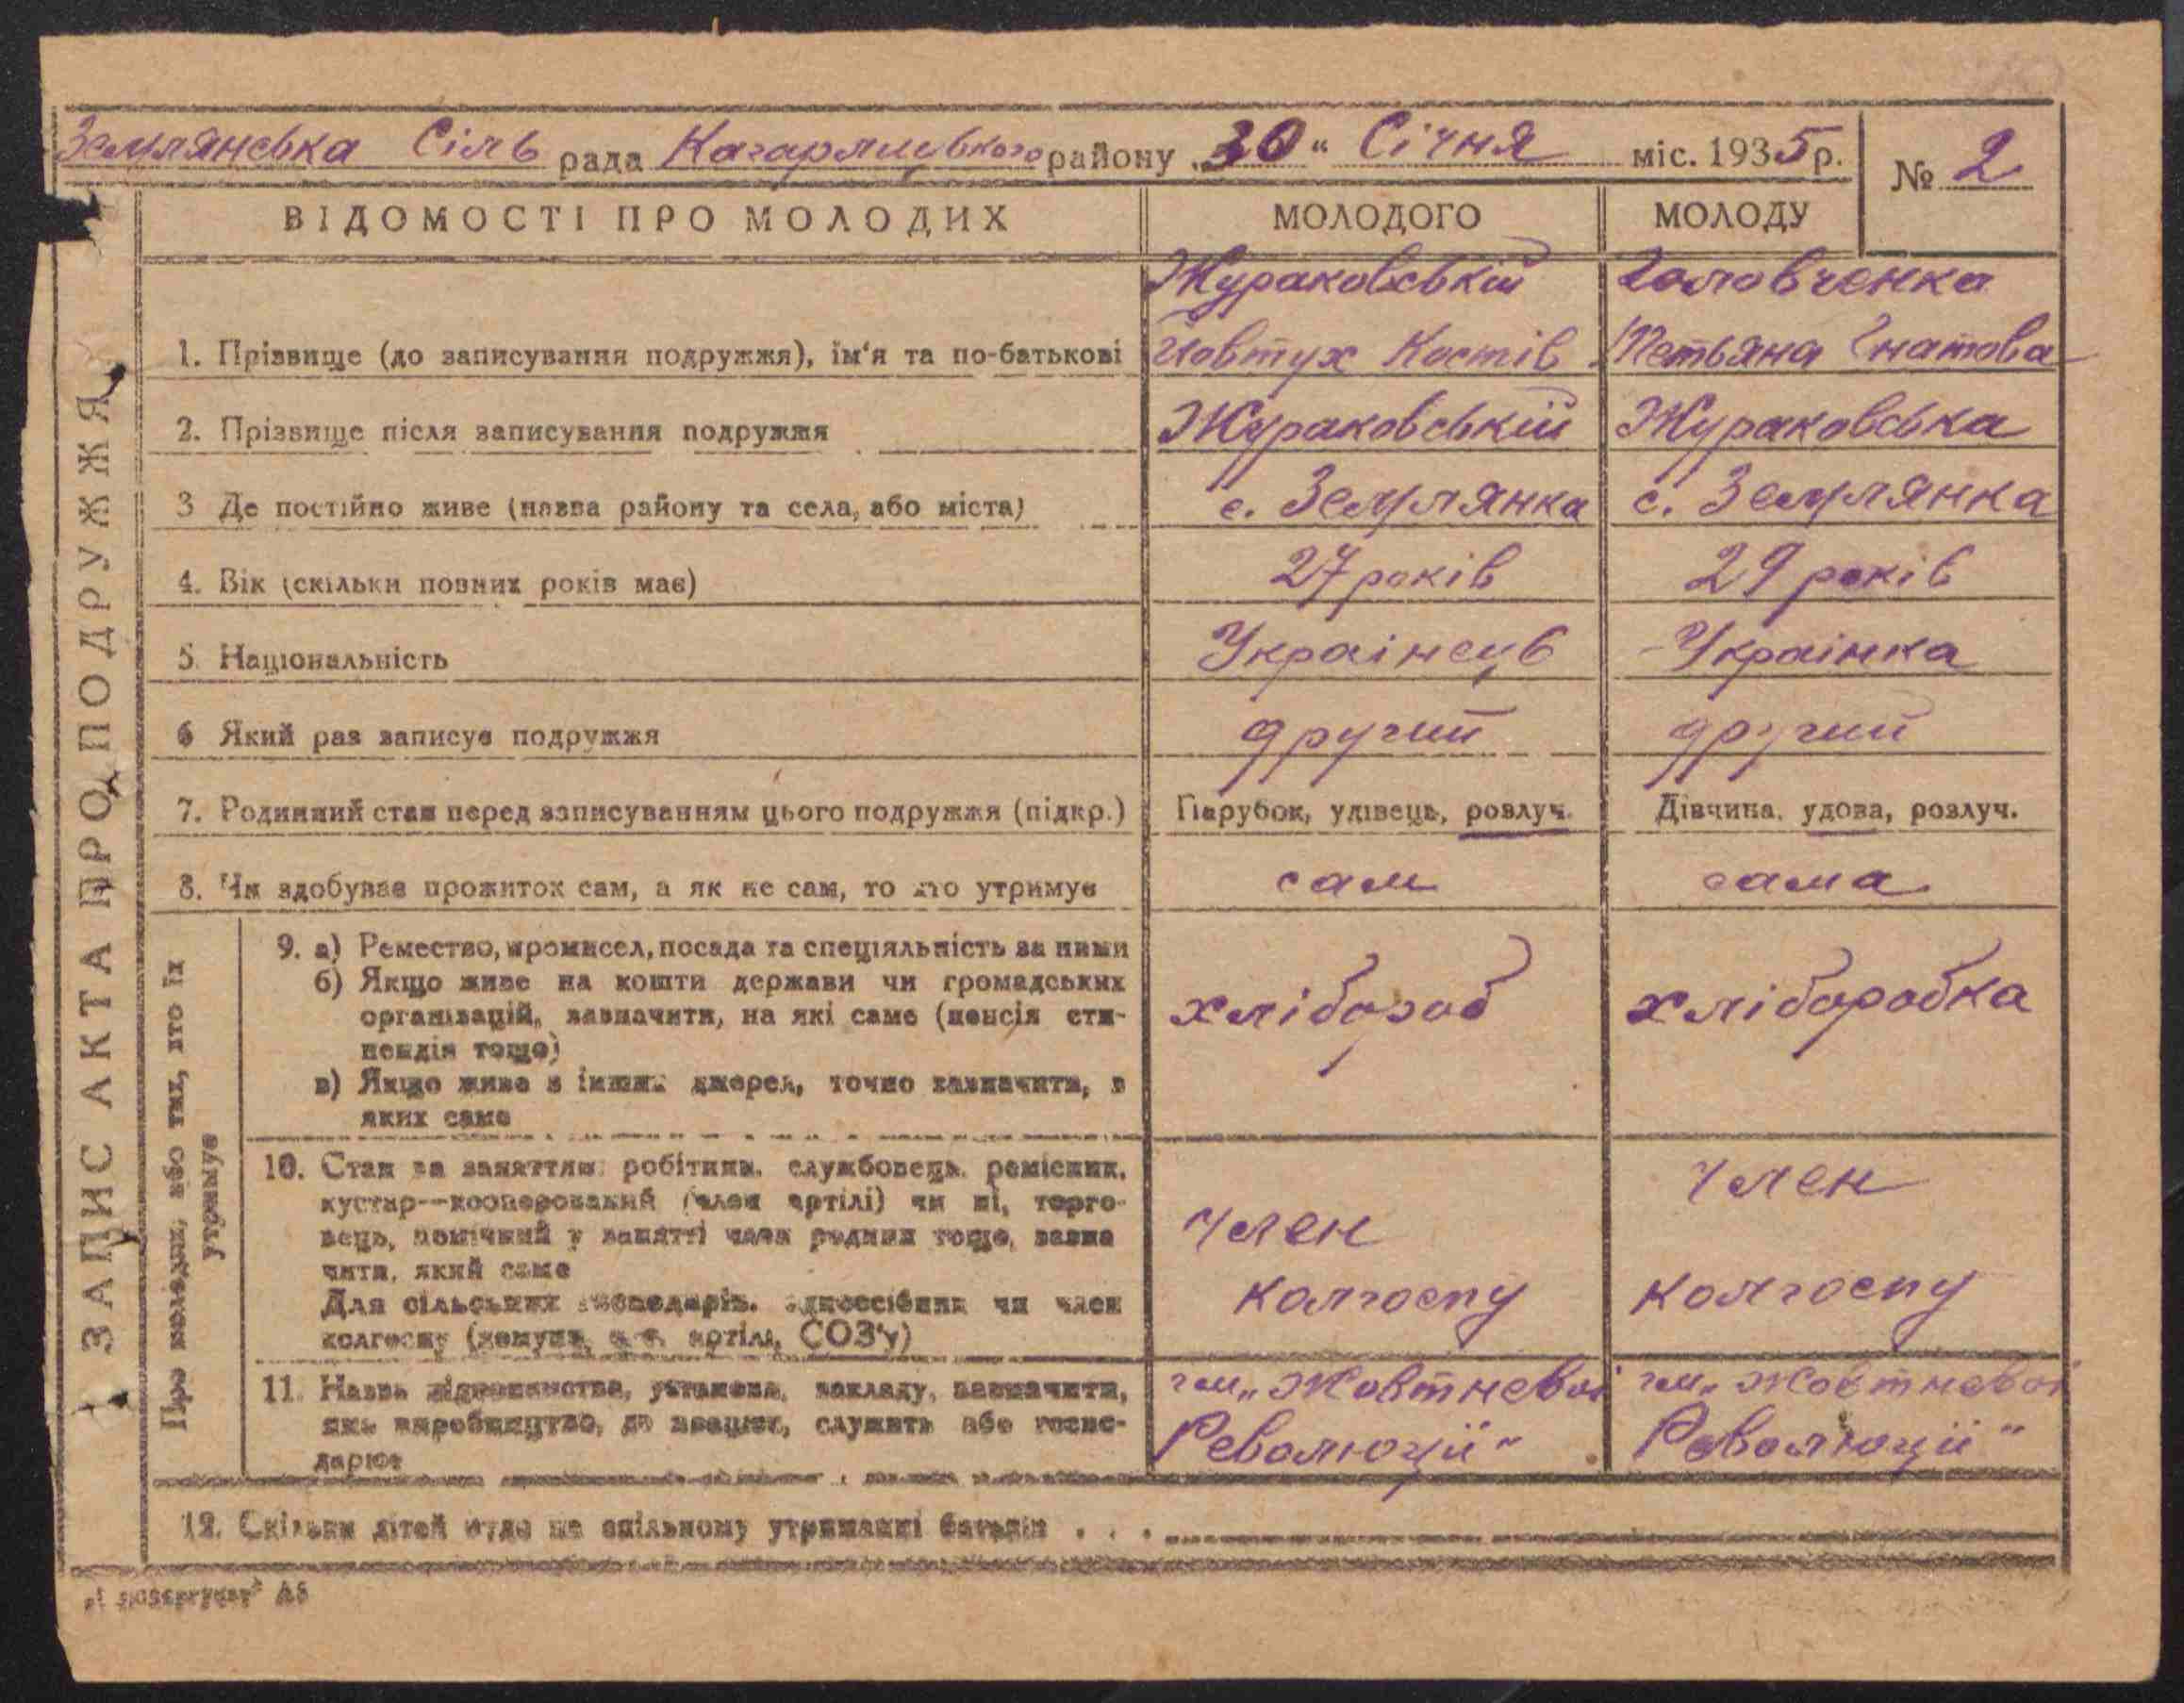 Землянська Сіль рада Кагарлицького району „30“ Січня міс. 1935 р. № 2
ВІДОМОСТІ ПРО МОЛОДИХ МОЛОДОГО МОЛОДУ
Жураковській Головченка
1. Прізвище (до записування подружжя), їм'я та по-батькові Йовтух Костів Тетьяна Гнатова
2. Прізвище після записування подружжя Жураковській Жураковська
3 Де постійно живе (назва району та села, або міста) с. Землянка с. Землянка
4. Вік (скільки повних років має) 27 років 29 років
5. Національність Українець Українка
6 Який раз записує подружжя другий другий
7. Родинний стан перед записуванням цього подружжя (підкр.) Парубок, удівець, розлуч. Дівчина, удова, розлуч.
8. Чи здобуває прожиток сам, а як не сам, то хто утримує сам сама
ЗАПИС АКТА ПРО ПОДРУЖЖЯ
Про молодих, або тих, хто їх
утримує
9. а) Ремество, промисел, посада та спеціяльність за ними
б) Якщо живе на кошти держави чи громадських
організацій, зазначити, на які саме (пенсія сти-
пендія тощо)
в) Якщо живе з інших джерел, точно зазначити, з
яких саме
хлібороб хліборобка
10. Стан за заняттям: робітник, службовець, ремісник,
кустар—кооперований (член артілі) чи ні, торго-
вець, помічний у занятті член родини тощо, зазна
чити, який саме
Для сільських господарів: одноосібник чи член
колгоспу (комуни, с.-г. артілі, СОЗ'у)
член колгоспу член колгоспу
11. Назва підприємства, установи, закладу, зазначити,
яке виробництво, де працює, служить або госпо-
дарює
гм „Жовтневої Революції“ гм „Жовтневої Революції“
12. Скільки дітей буде на спільному утриманні батьків . . .